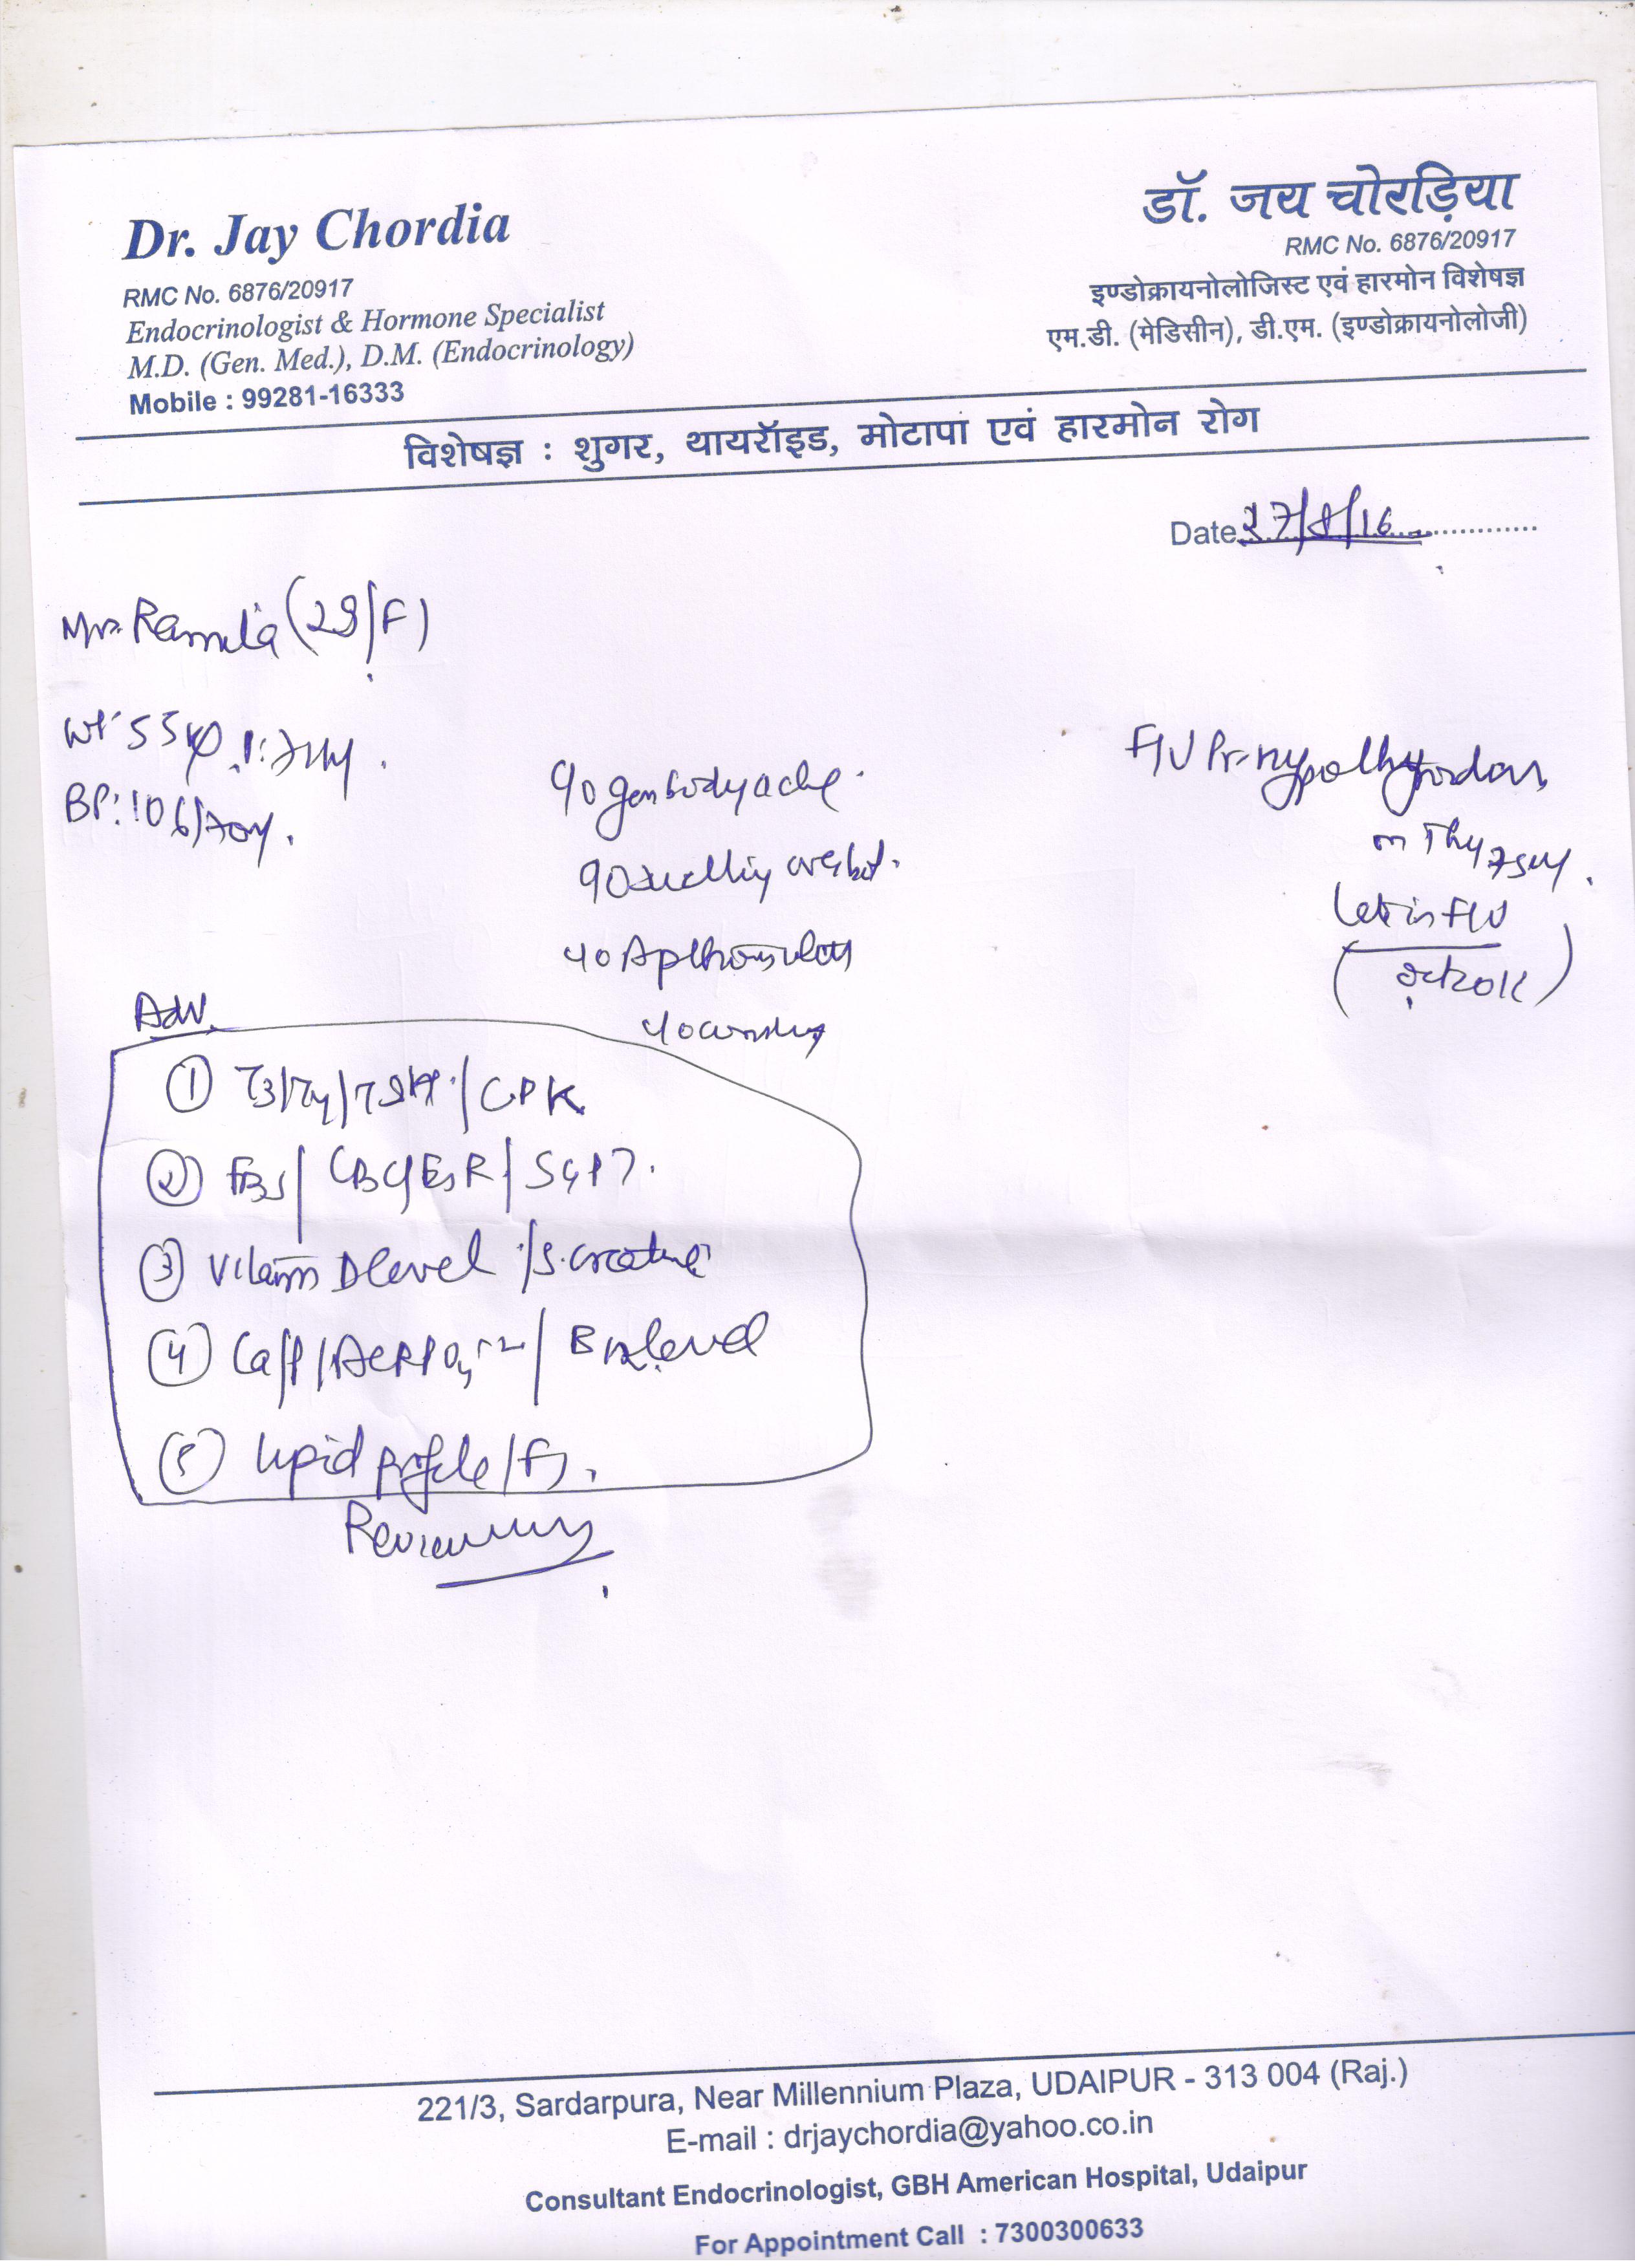 Dr. Jay Chordia
RMC No. 6876/20917
Endocrinologist & Hormone Specialist
M.D. (Gen. Med.), D.M. (Endocrinology)
Mobile : 99281-16333
डॉ. जय चोरड़िया
RMC No. 6876/20917
इण्डोक्रायनोलोजिस्ट एवं हारमोन विशेषज्ञ
एम.डी. (मेडिसीन), डी.एम. (इण्डोक्रायनोलोजी)
विशेषज्ञ : शुगर, थायरॉइड, मोटापा एवं हारमोन रोग
Date 27/8/16
Mrs. Ramila
BP: 106/70
c/o gen bodyache.
c/o swelling
c/o
c/o
F/U
on Thy 75
F/U
2011
Adv.
① T3/T4/TSH/CPK
② FBS/CBC/ESR/SGPT.
③ Vitamin D level/S. creatinine
④ Ca/P/B12 level
⑤ lipid profile
Review
221/3, Sardarpura, Near Millennium Plaza, UDAIPUR - 313 004 (Raj.)
E-mail : drjaychordia@yahoo.co.in
Consultant Endocrinologist, GBH American Hospital, Udaipur
For Appointment Call : 7300300633